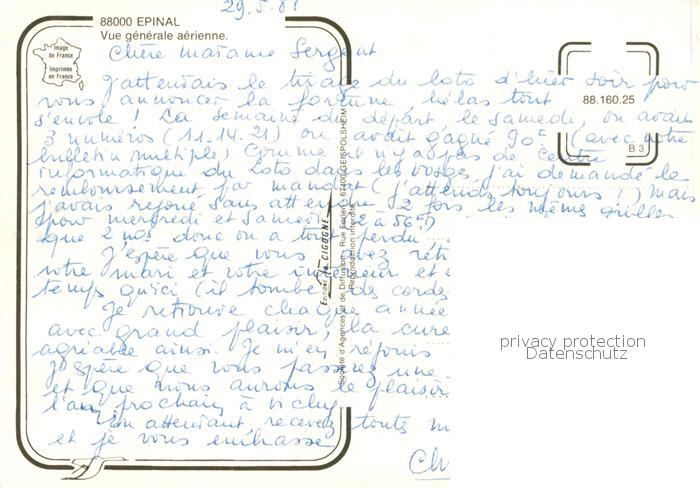 29.5.88
88000 EPINAL
Vue générale aérienne.
Image de France
Imprimée en France
Chère Madame Sergent
J'attendais le tirage du loto d'hier soir pour
vous annoncer la fortune hélas tout
s'envole ! La semaine du départ le samedi, on avait
3 numéros (11.14.21) on avait gagné 90F (avec notre
bulletin multiple) Comme il n'y a pas de centre
informatique du loto dans les Vosges j'ai demandé le
remboursement par mandat (j'attends toujours !) mais
j'avais rejoué sans attendre 2 fois les mêmes grilles
pour mercredi et samedi à 56F)
que 2 nos donc on a tout perdu
J'espère que vous avez
votre mari et votre intérieur et
temps qu'ici (il tombe des cordes
Je retrouve chaque année
avec grand plaisir, la cure
agréable ainsi. Je m'en réjouis
J'espère que vous passez une
et que nous aurons le plaisir
l'an prochain à Vichy
En attendant, recevez toutes m
et je vous embrasse
Ch
Editions "La CIGOGNE"
Société d'Agences et de Diffusion - Rue Forlen - 67400 GEISPOLSHEIM
Reproduction interdite
88.160.25
B 3
privacy protection
Datenschutz